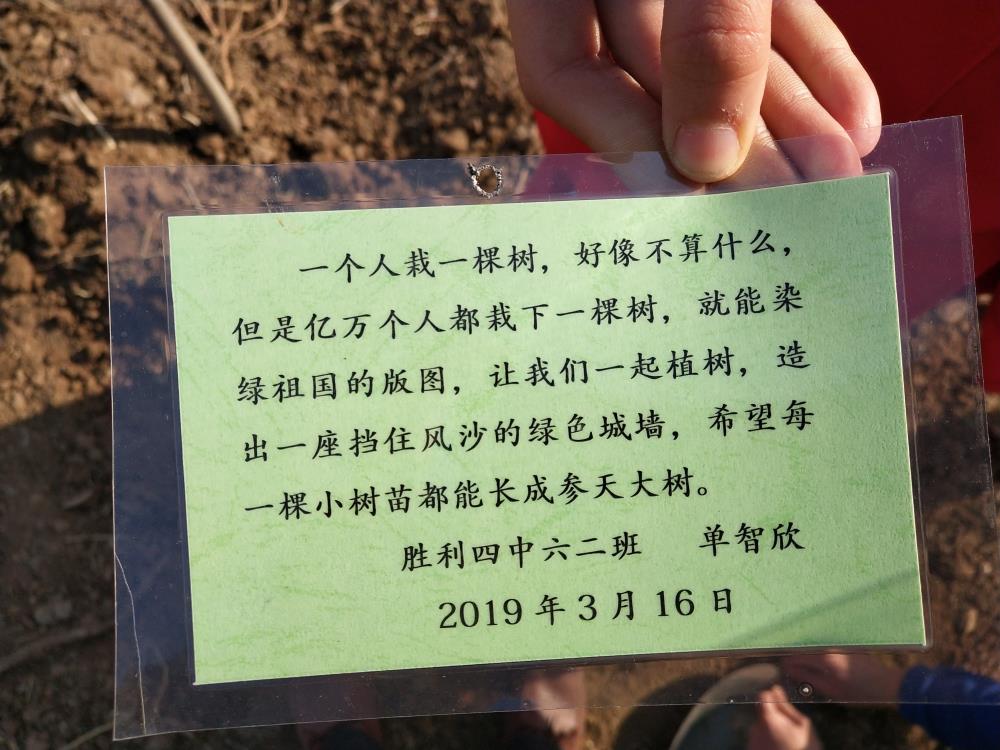 一个人栽一棵树，好像不算什么，
但是亿万个人都栽下一棵树，就能染
绿祖国的版图，让我们一起植树，造
出一座挡住风沙的绿色城墙，希望每
一棵小树苗都能长成参天大树。
胜利四中六二班 单智欣
2019年3月16日